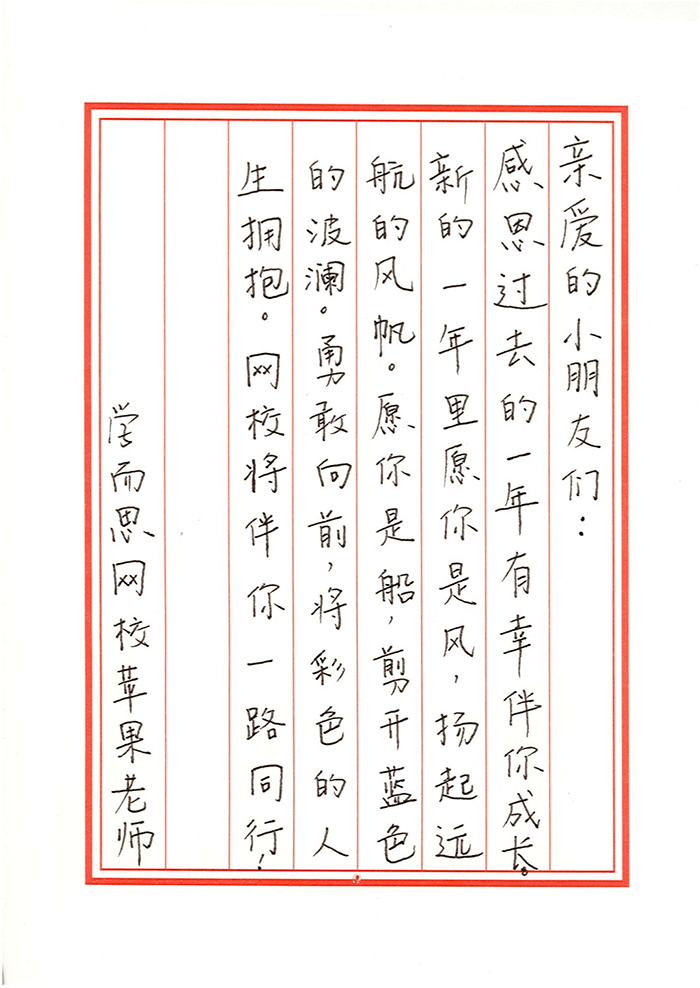 亲爱的小朋友们：
感恩过去的一年有幸伴你成长。
新的一年里愿你是风，扬起远
航的风帆。愿你是船，剪开蓝色
的波澜。勇敢向前，将彩色的人
生拥抱。网校将伴你一路同行！
学而思网校苹果老师